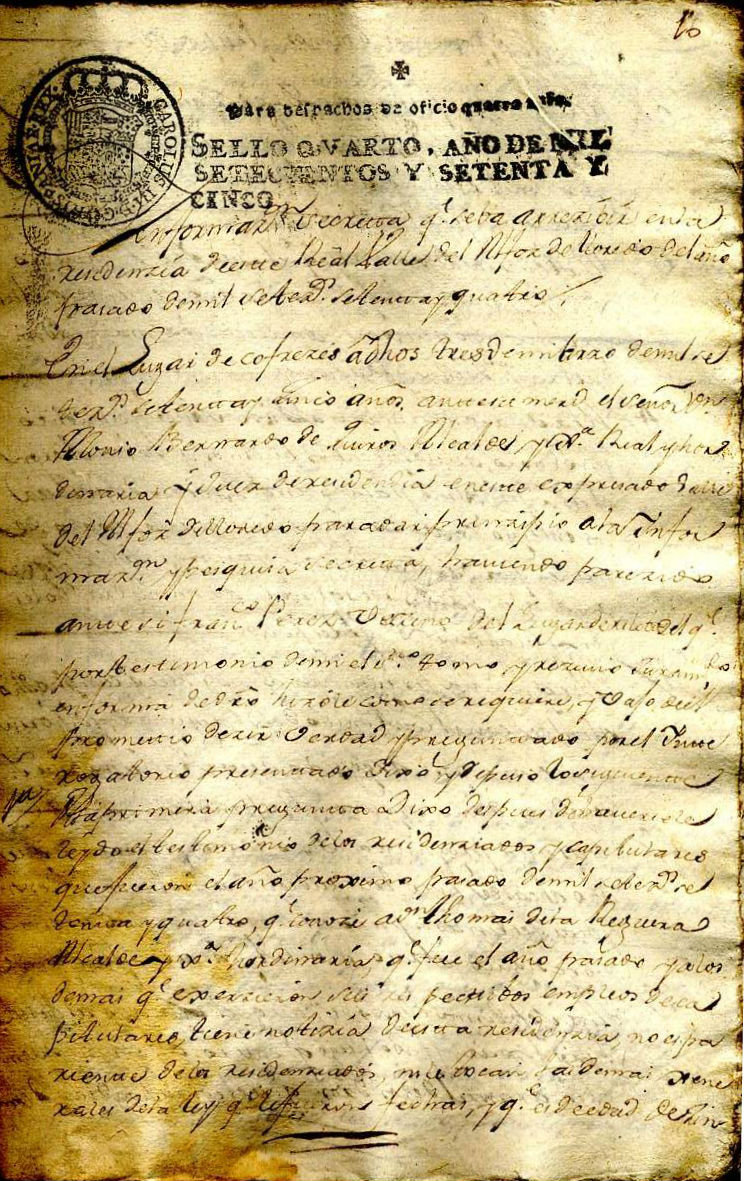 16
Para despachos de oficio quatro mrs.
SELLO QVARTO, AÑO DE MIL
SETECIENTOS Y SETENTA Y
CINCO.
CAROLUS III D.G. HISPANIAR. REX
Informazn secreta q.e se ba a rrezibir en la
residenzia de este Real Valle del Alfoz de lloredo del año
pasado de mil setez.s setenta y quatro
En el Lugar de cofrezes a dhos tres de marzo de mil se
tez.s setenta y cinco años, ante su merd el señor Dn
Antonio Bernardo de quiros Alcalde, y Real y hor
dinaria y Juez de residenzia en este expresado Valle
del Alfoz de lloredo para dar prinzipio a la infor
mazn y pesquisa secreta, haviendo parezido
ante si fran.co Perez vezino del Lugar de del q.e
por testimonio de mi el ess.no tomo, y rezivio Juram.to
en forma de dro hizole como se requiere, y vajo de el
prometio dezir verdad y preguntado por el Inte
rrogatorio presentado dixo y depuso lo siguiente
1a A la primera pregunta Dixo despues de haversele
leydo el testimonio de los residenziados y capitulares
que fueron el año proximo pasado de mil setez.s se
tenta y quatro, q.e conoze a Dn thomas de la Reguera
Alcalde y hordinaria, q.e fue el año pasado y a los
demas q.e exerzieron sus respectibos empleos de ca
pitulares, tiene notizia de esta residenzia, no es pa
riente de los residenziados, ni le tocan las demas xene
rales de la ley q.e le fueron fechas, y q.e es de edad de zin